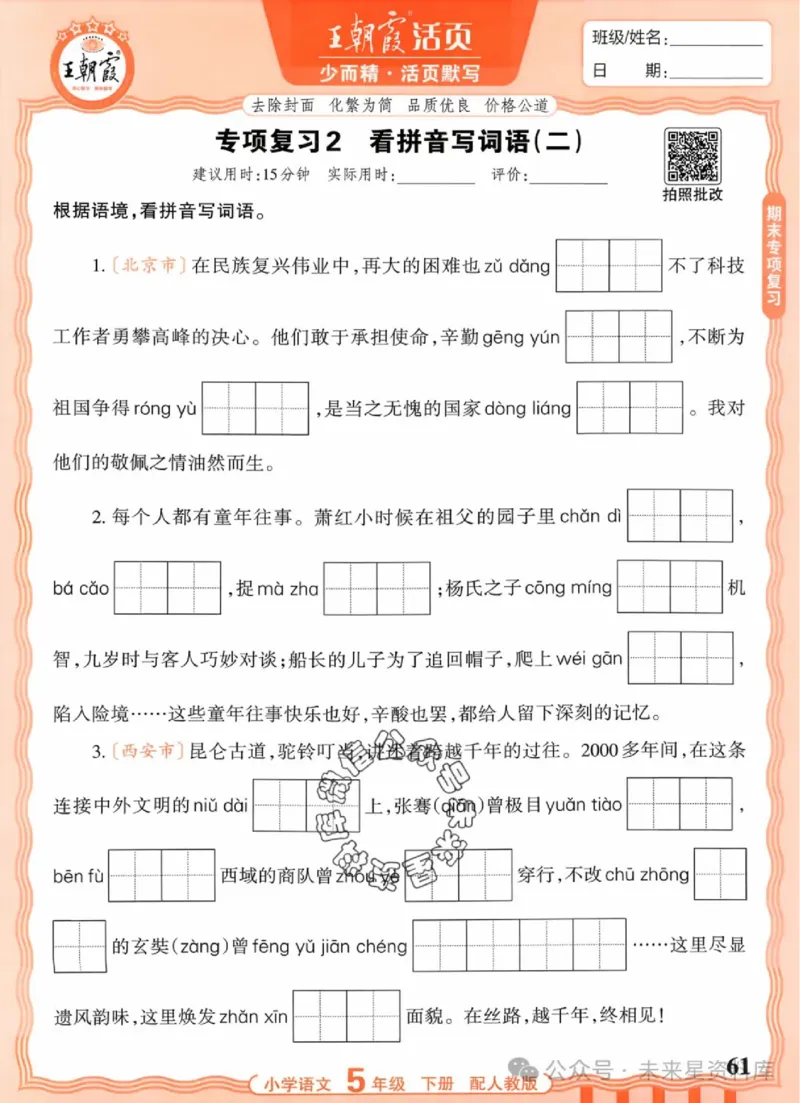 王朝霞
王朝霞®活页
少而精·活页默写
班级/姓名:
日 期:
去除封面 化繁为简 品质优良 价格公道
专项复习2 看拼音写词语(二)
建议用时:15分钟 实际用时: 评价:
拍照批改
期末专项复习
根据语境,看拼音写词语。
1.〔北京市〕在民族复兴伟业中,再大的困难也zǔ dǎng 不了科技
工作者勇攀高峰的决心。他们敢于承担使命,辛勤gēng yún ,不断为
祖国争得róng yù ,是当之无愧的国家dòng liáng 。我对
他们的敬佩之情油然而生。
2. 每个人都有童年往事。萧红小时候在祖父的园子里chǎn dì ,
bá cǎo ,捉mà zha ;杨氏之子cōng míng 机
智,九岁时与客人巧妙对谈;船长的儿子为了追回帽子,爬上wéi gān ,
陷入险境……这些童年往事快乐也好,辛酸也罢,都给人留下深刻的记忆。
3.〔西安市〕昆仑古道,驼铃叮当,讲述着跨越千年的过往。2000多年间,在这条
连接中外文明的niǔ dài 上,张骞(qiān)曾极目yuǎn tiào ,
bēn fù 西域的商队曾zhòu yè 穿行,不改chū zhōng
的玄奘(zàng)曾fēng yǔ jiān chéng ……这里尽显
遗风韵味,这里焕发zhǎn xīn 面貌。在丝路,越千年,终相见!
61
小学语文 5年级 下册 配人教版
公众号·未来星资料库